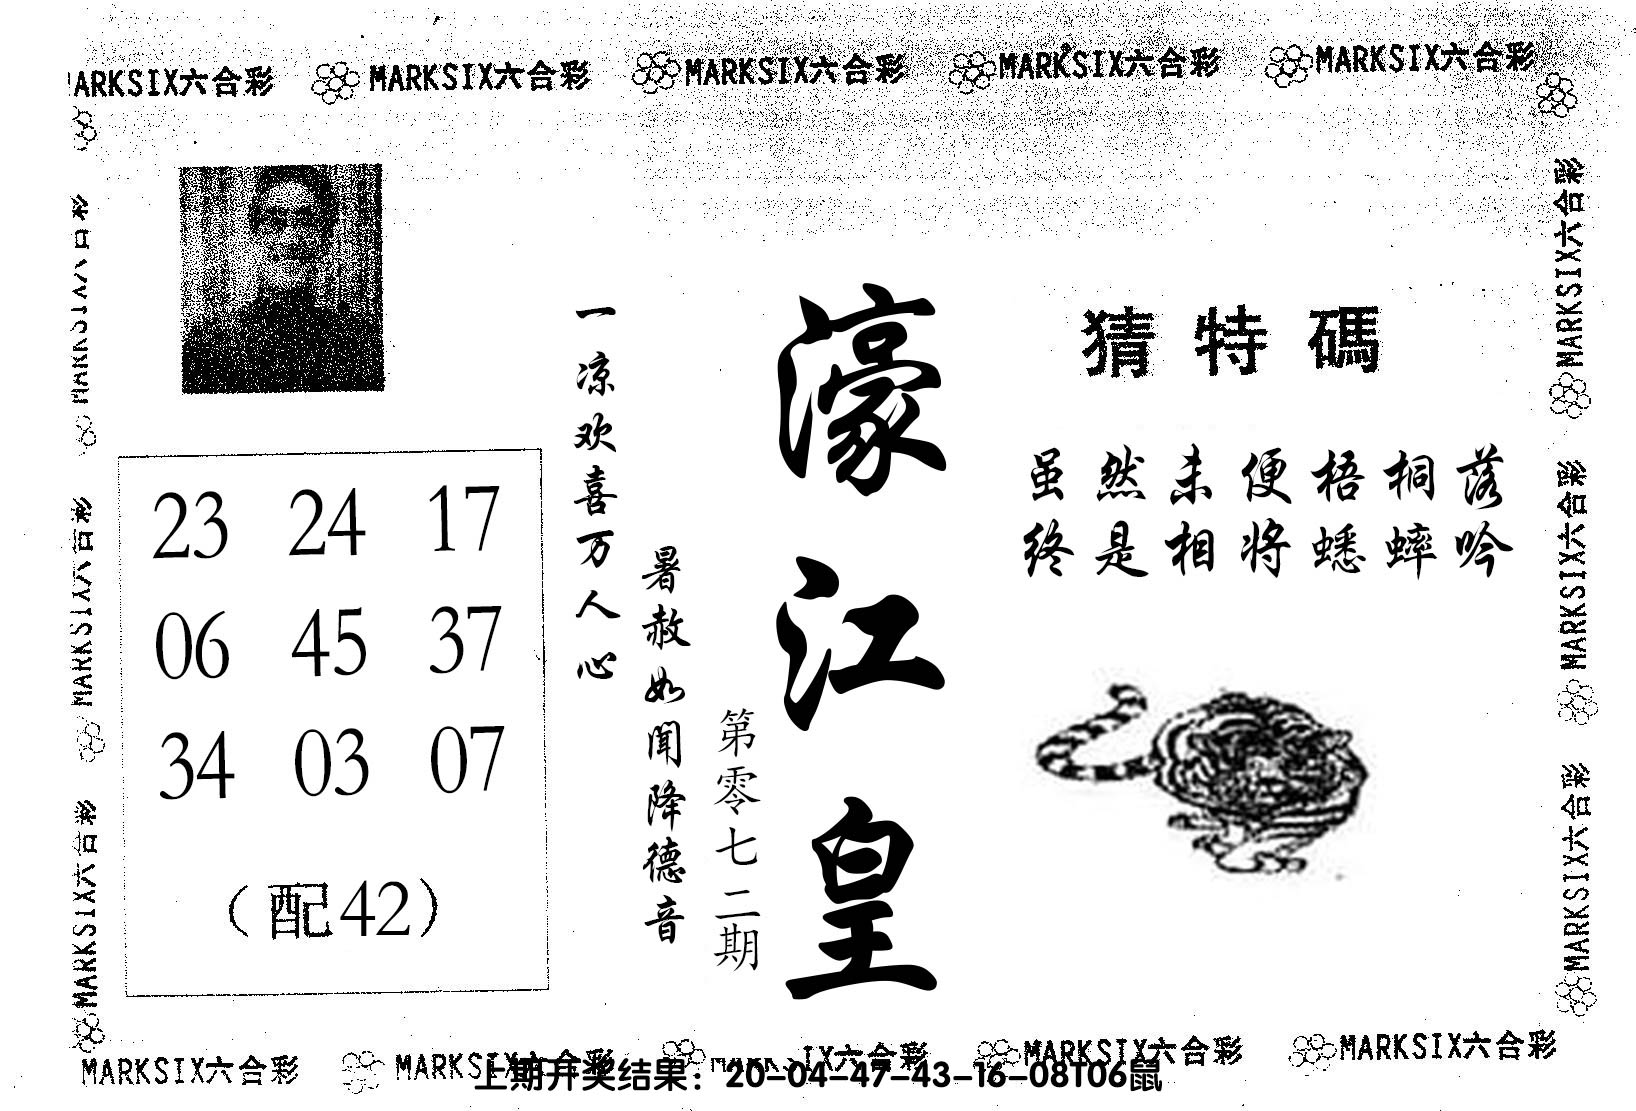 MARKSIX六合彩 MARKSIX六合彩 MARKSIX六合彩 MARKSIX六合彩 MARKSIX六合彩
MARKSIX六合彩
MARKSIX六合彩
MARKSIX六合彩
猜特碼
虽然未便梧桐落
终是相将蟋蟀吟
濠江皇
第零七二期
暑赦如闻降德音
一凉欢喜万人心
23 24 17
06 45 37
34 03 07
（配42）
MARKSIX六合彩
MARKSIX六合彩
MARKSIX六合彩
MARKSIX六合彩 MARKSIX六合彩 MARKSIX六合彩 MARKSIX六合彩 MARKSIX六合彩
上期开奖结果：20-04-47-43-16-08T06鼠